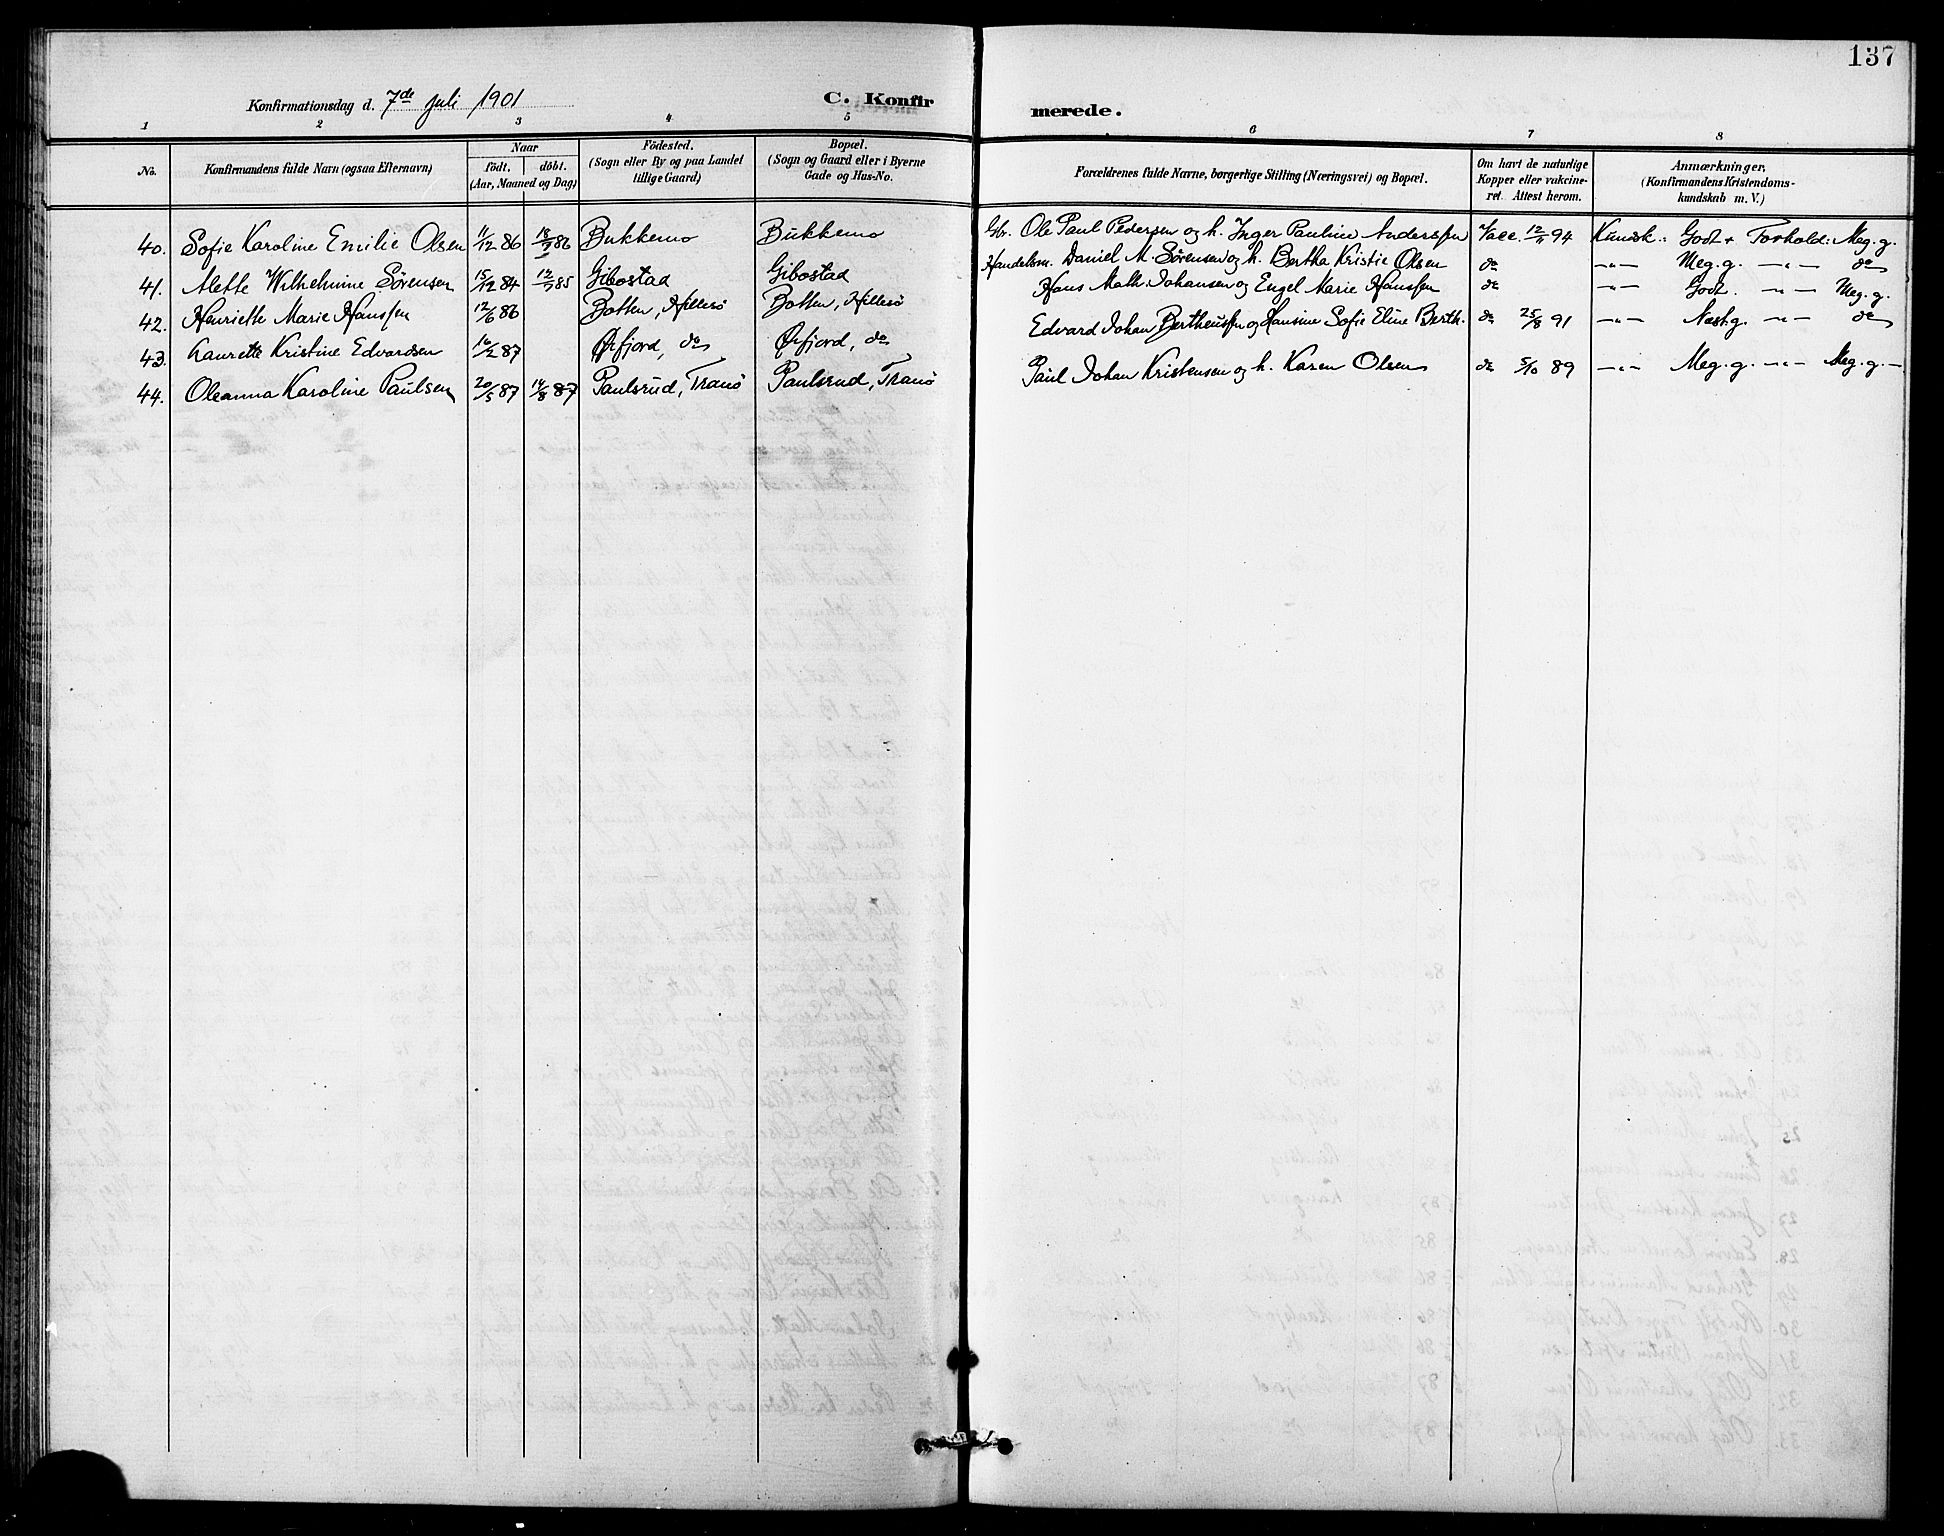 137
Konfirmationsdag d. 7de juli 1901
C. Konfir
merede.
1 2 3 4 5 6 7 8
No.
Konfirmandens fulde Navn (ogsaa Efternavn)
Naar
født. døbt.
(Aar, Maaned og Dag)
Fødested.
(Sogn eller By og paa Landet
tillige Gaard)
Bopæl.
(Sogn og Gaard eller i Byerne
Gade og Hus-No.
Forældrenes fulde Navne, borgerlige Stilling (Næringsvei) og Bopæl.
Om havt de naturlige
Kopper eller vakcine-
ret. Attest herom.
Anmærkninger,
(Konfirmandens Kristendoms-
kundskab m. V.)
40. Sofie Karoline Emilie Olsen 11/12 86 86 Bukkemo Bukkemo Gbr. Ole Paul Pedersen og h. Inger Pauline Anderssen Vacc. 12/11 94 Kundsk.: Godt + Forhold: Meg. g.
41. Alette Wilhelmine Sørensen 15/12 84 12/7 85 Gibostad Gibostad Handelsm. Daniel M. Sørensen og h. Bertha Kristie Olsen do -"- Meg. g. -"- do
42. Henriette Marie Hanssen 12/6 86 Botten, Hillesø Botten, Hillesø Hans Math. Johansen og Engel Marie Hanssen do -"- Godt. -"- Meg. g.
43. Laurette Kristine Edvardsen 16/2 87 Ørfjord, do Ørfjord, do Edvard Johan Bertheussen og Hansine Sofie Eline Berth. do 25/8 91 -"- Næst. g. -"- do
44. Oleanna Karoline Paulsen 20/5 87 14/8 87 Paulsrud, Tranø Paulsrud, Tranø Paul Johan Kristensen og h. Karen Olsen do 5/10 89 -"- Meg. g. -"- Meg. g.